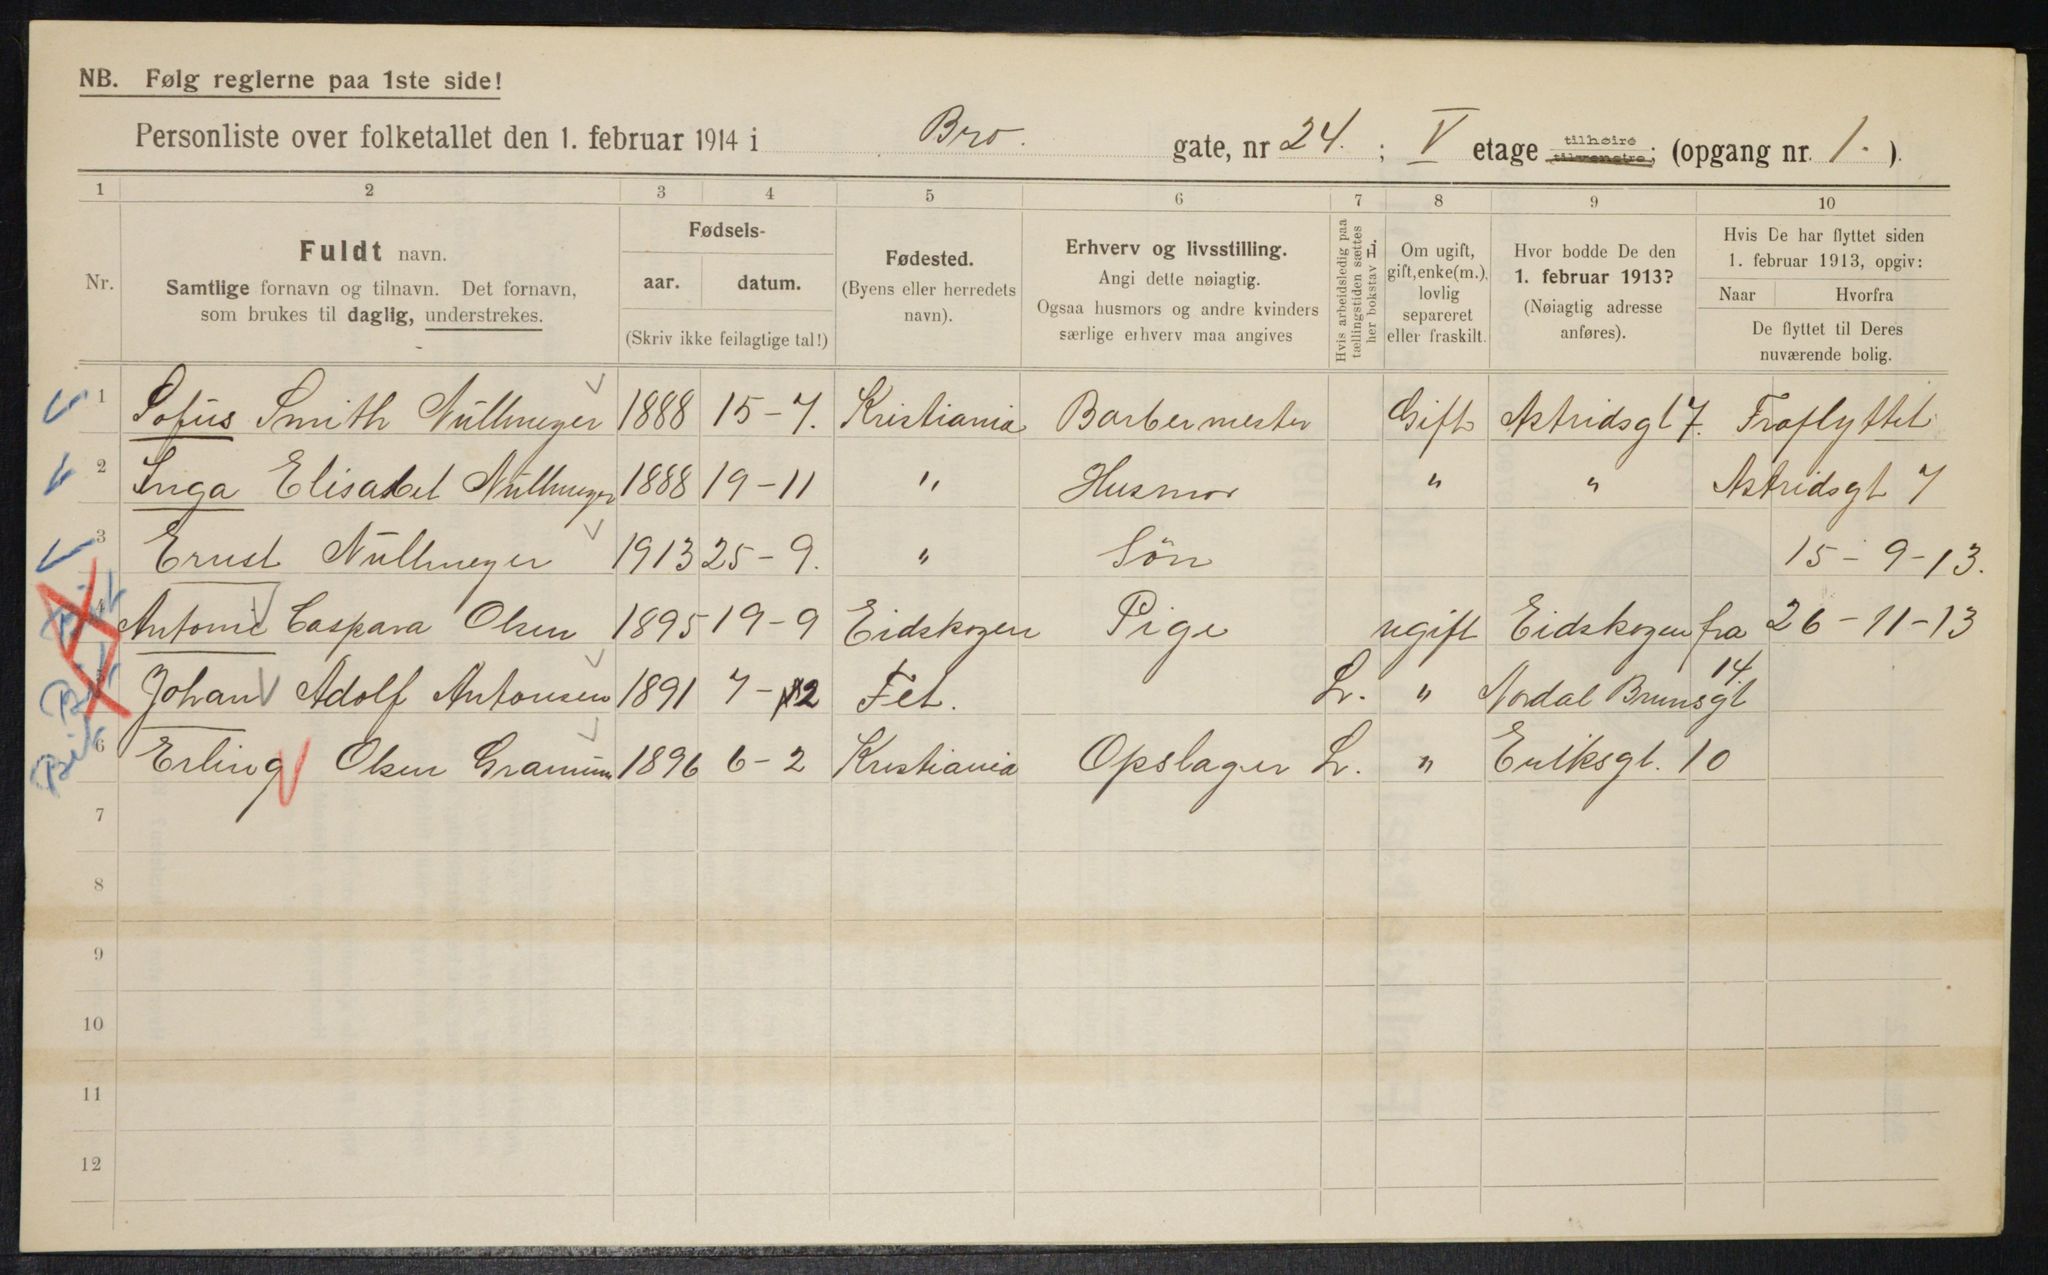 NB. Følg reglerne paa 1ste side!
Personliste over folketallet den 1. februar 1914 i Bro. gate, nr 24. ; V etage tilhøire tilvenstre; (opgang nr. 1. ).
1 2 3 4 5 6 7 8 9 10
Nr.
Fuldt navn.
Samtlige fornavn og tilnavn. Det fornavn,
som brukes til daglig, understrekes.
Fødsels-
aar. datum.
(Skriv ikke feilagtige tal!)
Fødested.
(Byens eller herredets
navn).
Erhverv og livsstilling.
Angi dette nøiagtig.
Ogsaa husmors og andre kvinders
særlige erhverv maa angives
Hvis arbeidsledig paa
tællingstiden sættes
her bokstav L.
Om ugift,
gift, enke(m.),
lovlig
separeret
eller fraskilt.
Hvor bodde De den
1. februar 1913?
(Nøiagtig adresse
anføres).
Hvis De har flyttet siden
1. februar 1913, opgiv:
Naar Hvorfra
De flyttet til Deres
nuværende bolig.
1 Sofus Smith Nüllmeyer 1888 15-7. Kristiania Barbermester Gift Astridsgt 7. Fraflyttet
2 Inga Elisabet Nüllmeyer 1888 19-11 " Husmor " " Astridsgt 7
3 Ernst Nüllmeyer 1913 25-9. " Sön 15-9-13.
4 Antonie Caspara Olsen 1895 19-9 Eidskogen Pige ugift Eidskogen fra 26-11-13
5 Johan Adolf Antonsen 1891 7-12 Fet. L. " Nordal Brunsgt 14.
6 Erling Olsen Granum 1896 6-2 Kristiania Opslager L. " Eriksgt. 10
7
8
9
10
11
12